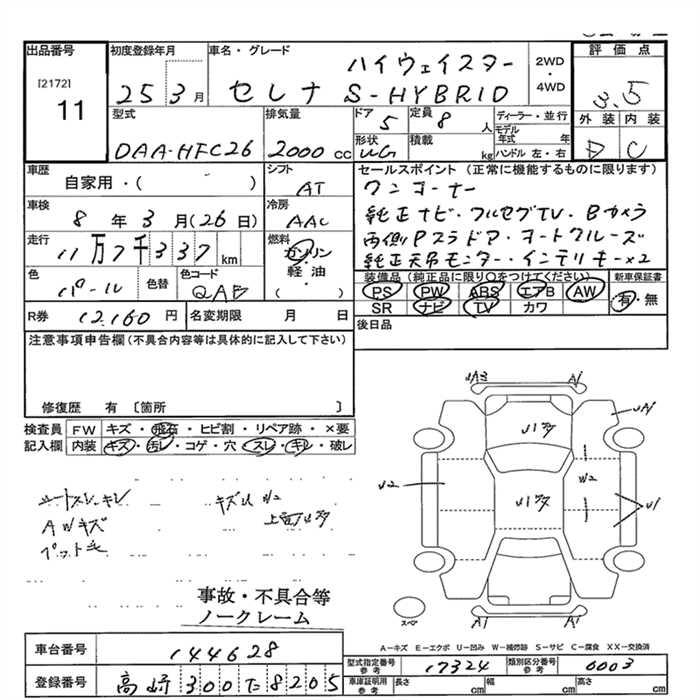 出品番号
[2172]
11
初度登録年月
25 3 月
車名・グレード
ハイウェイスター
セレナ S-HYBRID
2WD
・
4WD
評価点
3.5
外装 内装
D C
型式
DAA-HFC26
排気量
2000 cc
ドア
5
定員
8 人
形状
UG
積載
kg
ディーラー・並行
モデル年式 年
ハンドル 左・右
車歴
自家用・( )
シフト
AT
車検
8 年 3 月 (26 日)
冷房
AAC
走行
11万7千337 km
燃料
ガソリン・軽油・( )
色
パール
色替
色コード
QAB
R券 12,160 円
名変期限 月 日
セールスポイント (正常に機能するものに限ります)
ワンオーナー
純正ナビ・フルセグTV・Bカメラ
両側Pスラドア・オートクルーズ
純正天吊モニター・インテリキー×2
装備品 (純正品に限り○をつけてください)
PS PW ABS エアB AW
SR ナビ TV カワ
新車保証書
有・無
後日品
注意事項申告欄 (不具合内容等は具体的に記入して下さい)
修復歴 有 〔箇所 〕
検査員 FW キズ・飛石・ヒビ割・リペア跡・×要
記入欄 内装 キズ・汚レ・コゲ・穴・スレ・キレ・破レ
シートスレ・キレ
AWキズ
ペット毛
キズU W2
UA3 A1
U1多
UA1
U2
W2
U1多
U1
A1 A1
スペア
事故・不具合等
ノークレーム
A-キズ E-エクボ U-凹み W-補修跡 S-サビ C-腐食 XX-交換済
車台番号 144628
登録番号 高崎 300 た 8205
型式指定番号 参考 17324
類別区分番号 参考 0003
車庫証明用 参考
長さ cm
幅 cm
高さ cm